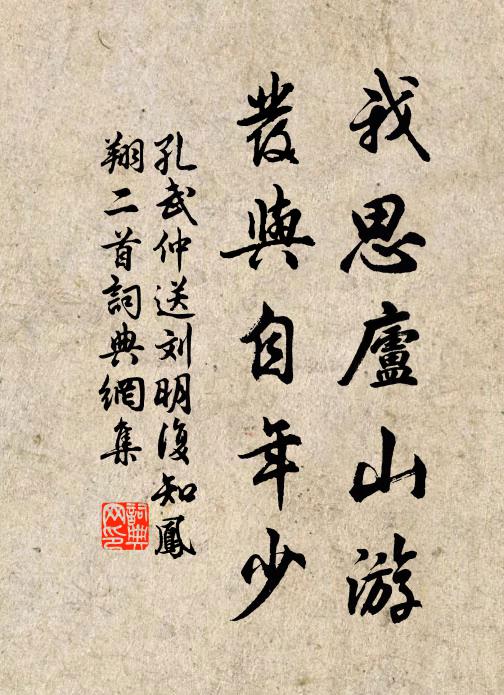 我思廬山游
發興自年少
孔武仲送刘明復知鳳
翔二首詞典網集
詞典网印